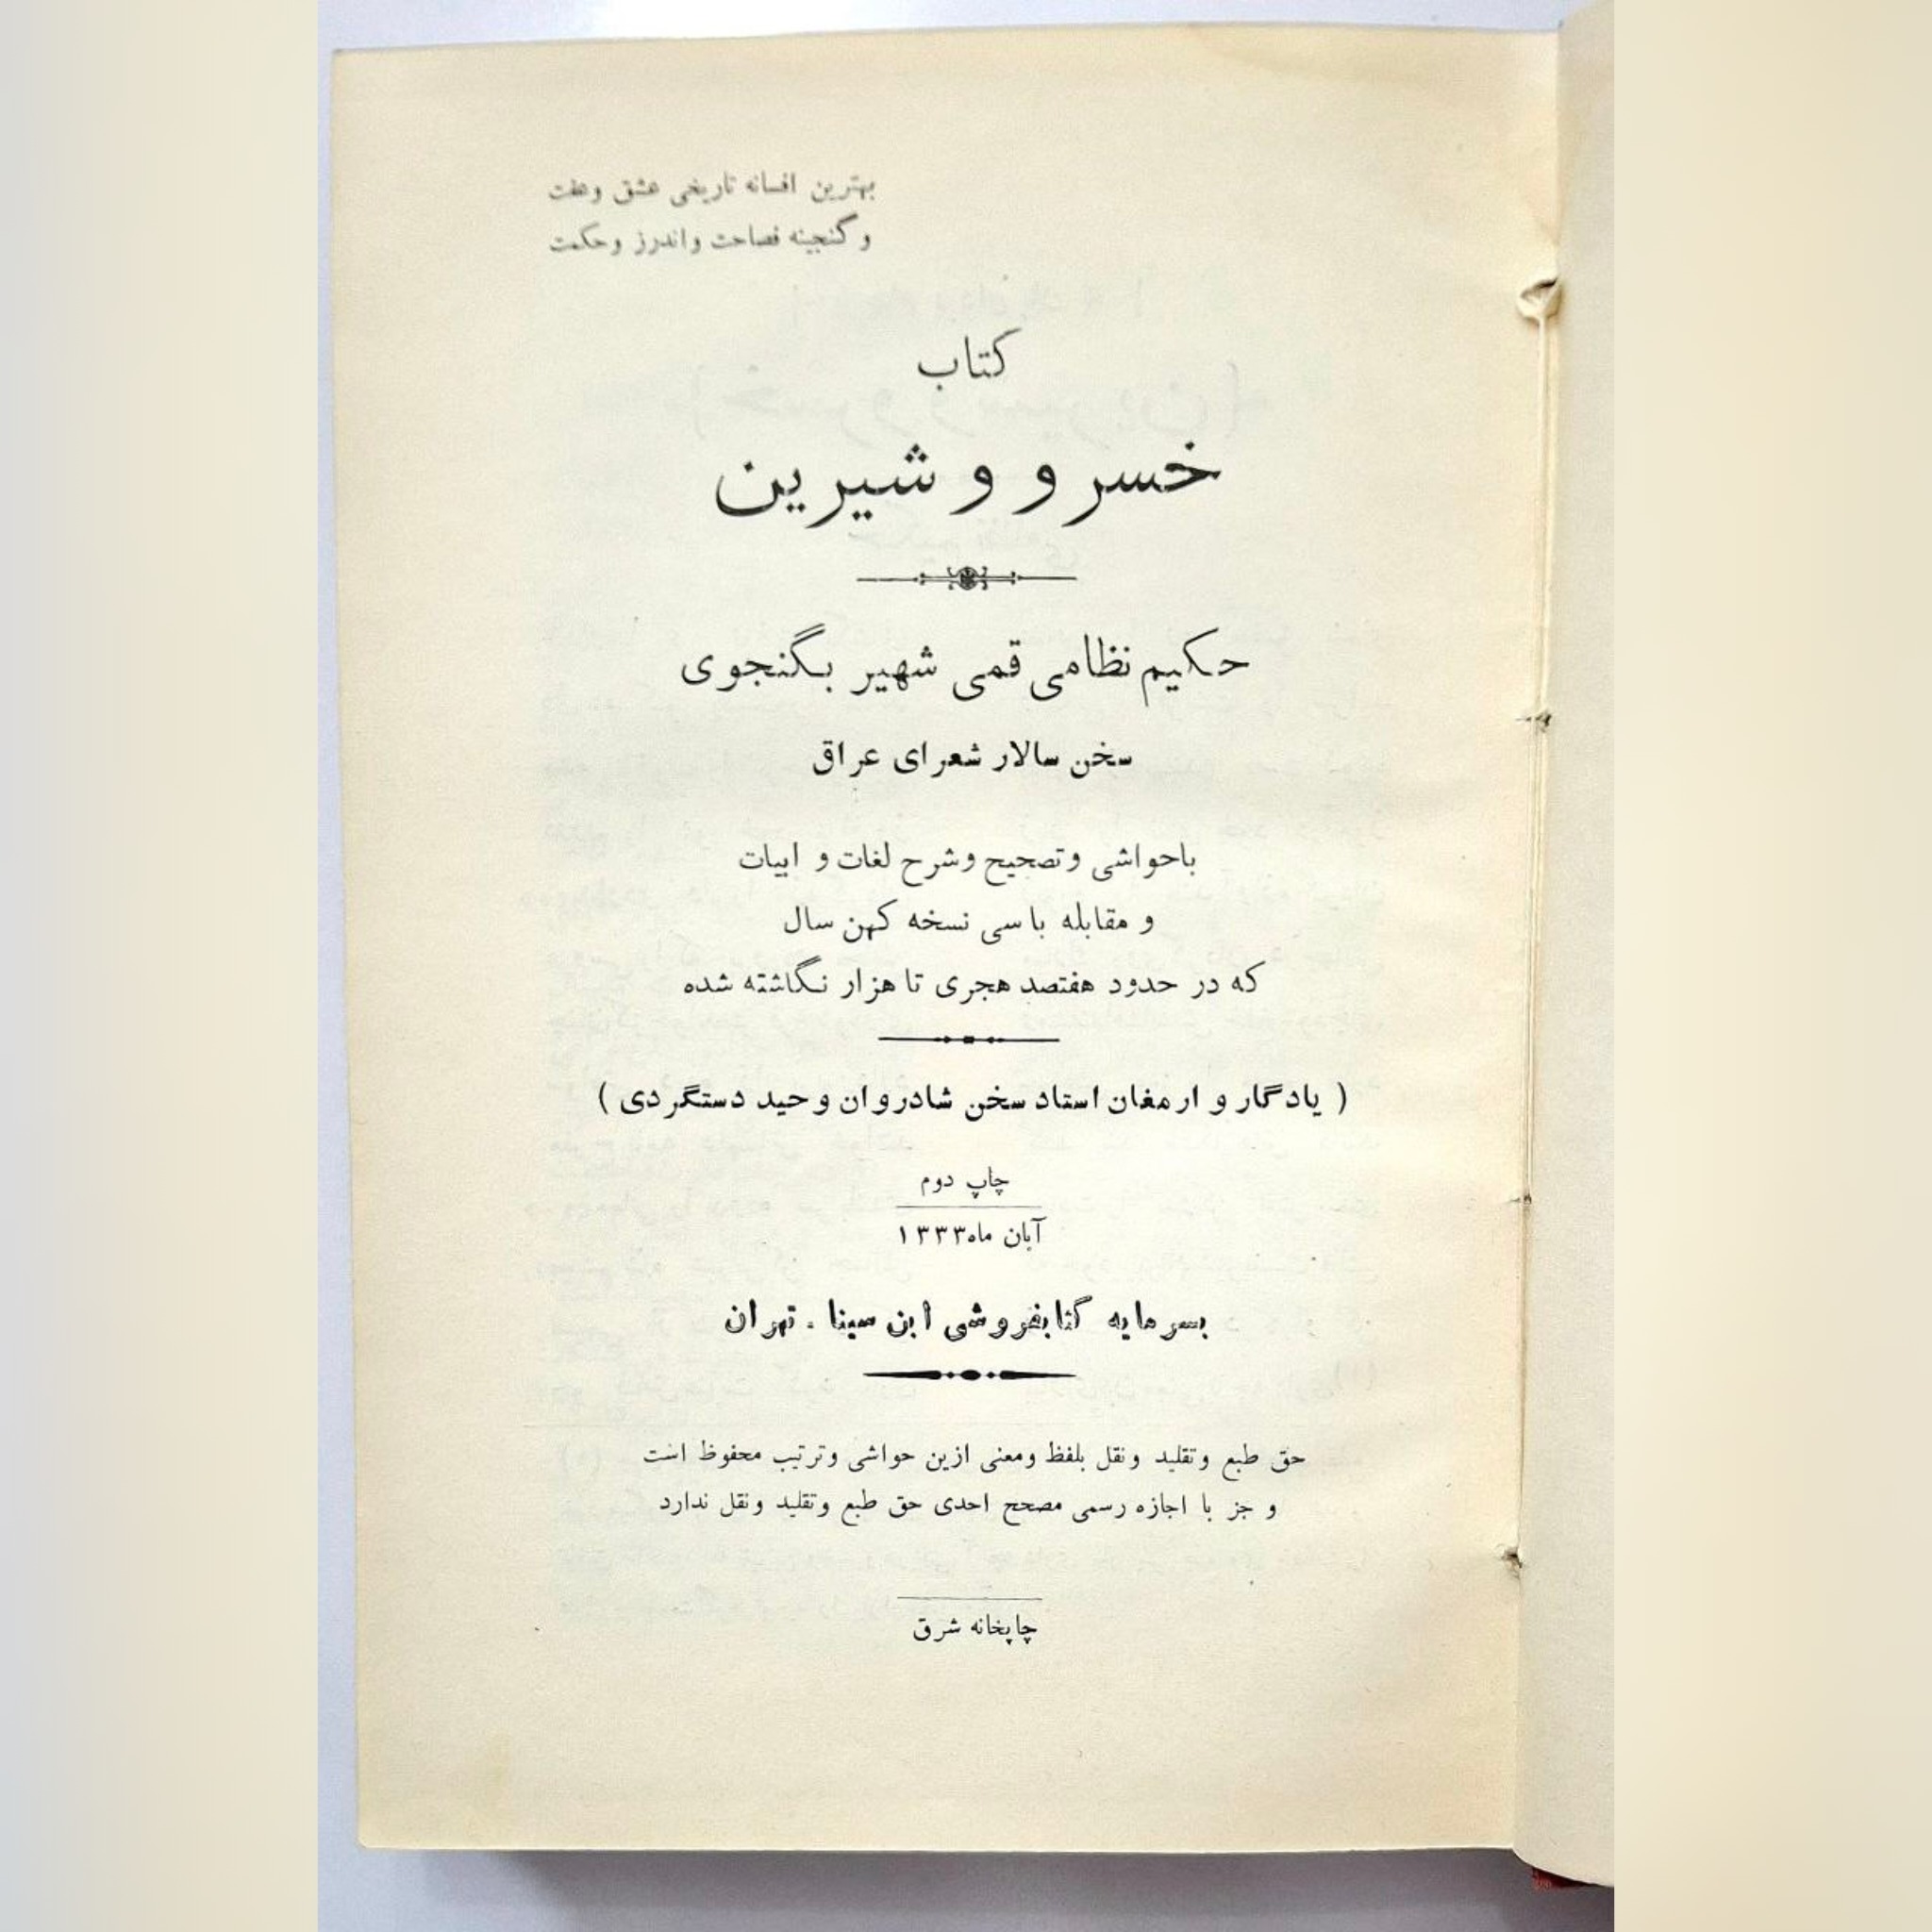 بهترین افسانه تاریخی عشق وعفت
و گنجینه فصاحت واندرز وحکمت
کتاب
خسرو و شیرین
حکیم نظامی قمی شهیر بگنجوی
سخن سالار شعرای عراق
باحواشی وتصحیح وشرح لغات و ابیات
و مقابله باسی نسخه کهن سال
که در حدود هفتصد هجری تا هزار نگاشته شده
( یادگار و ارمغان استاد سخن شادروان وحید دستگردی )
چاپ دوم
آبان ماه ۱۳۳۳
بسرمایه کتابفروشی ابن سینا . تهران
حق طبع وتقلید ونقل بلفظ ومعنی ازین حواشی وترتیب محفوظ است
و جز با اجازه رسمی مصحح احدی حق طبع وتقلید ونقل ندارد
چاپخانه شرق